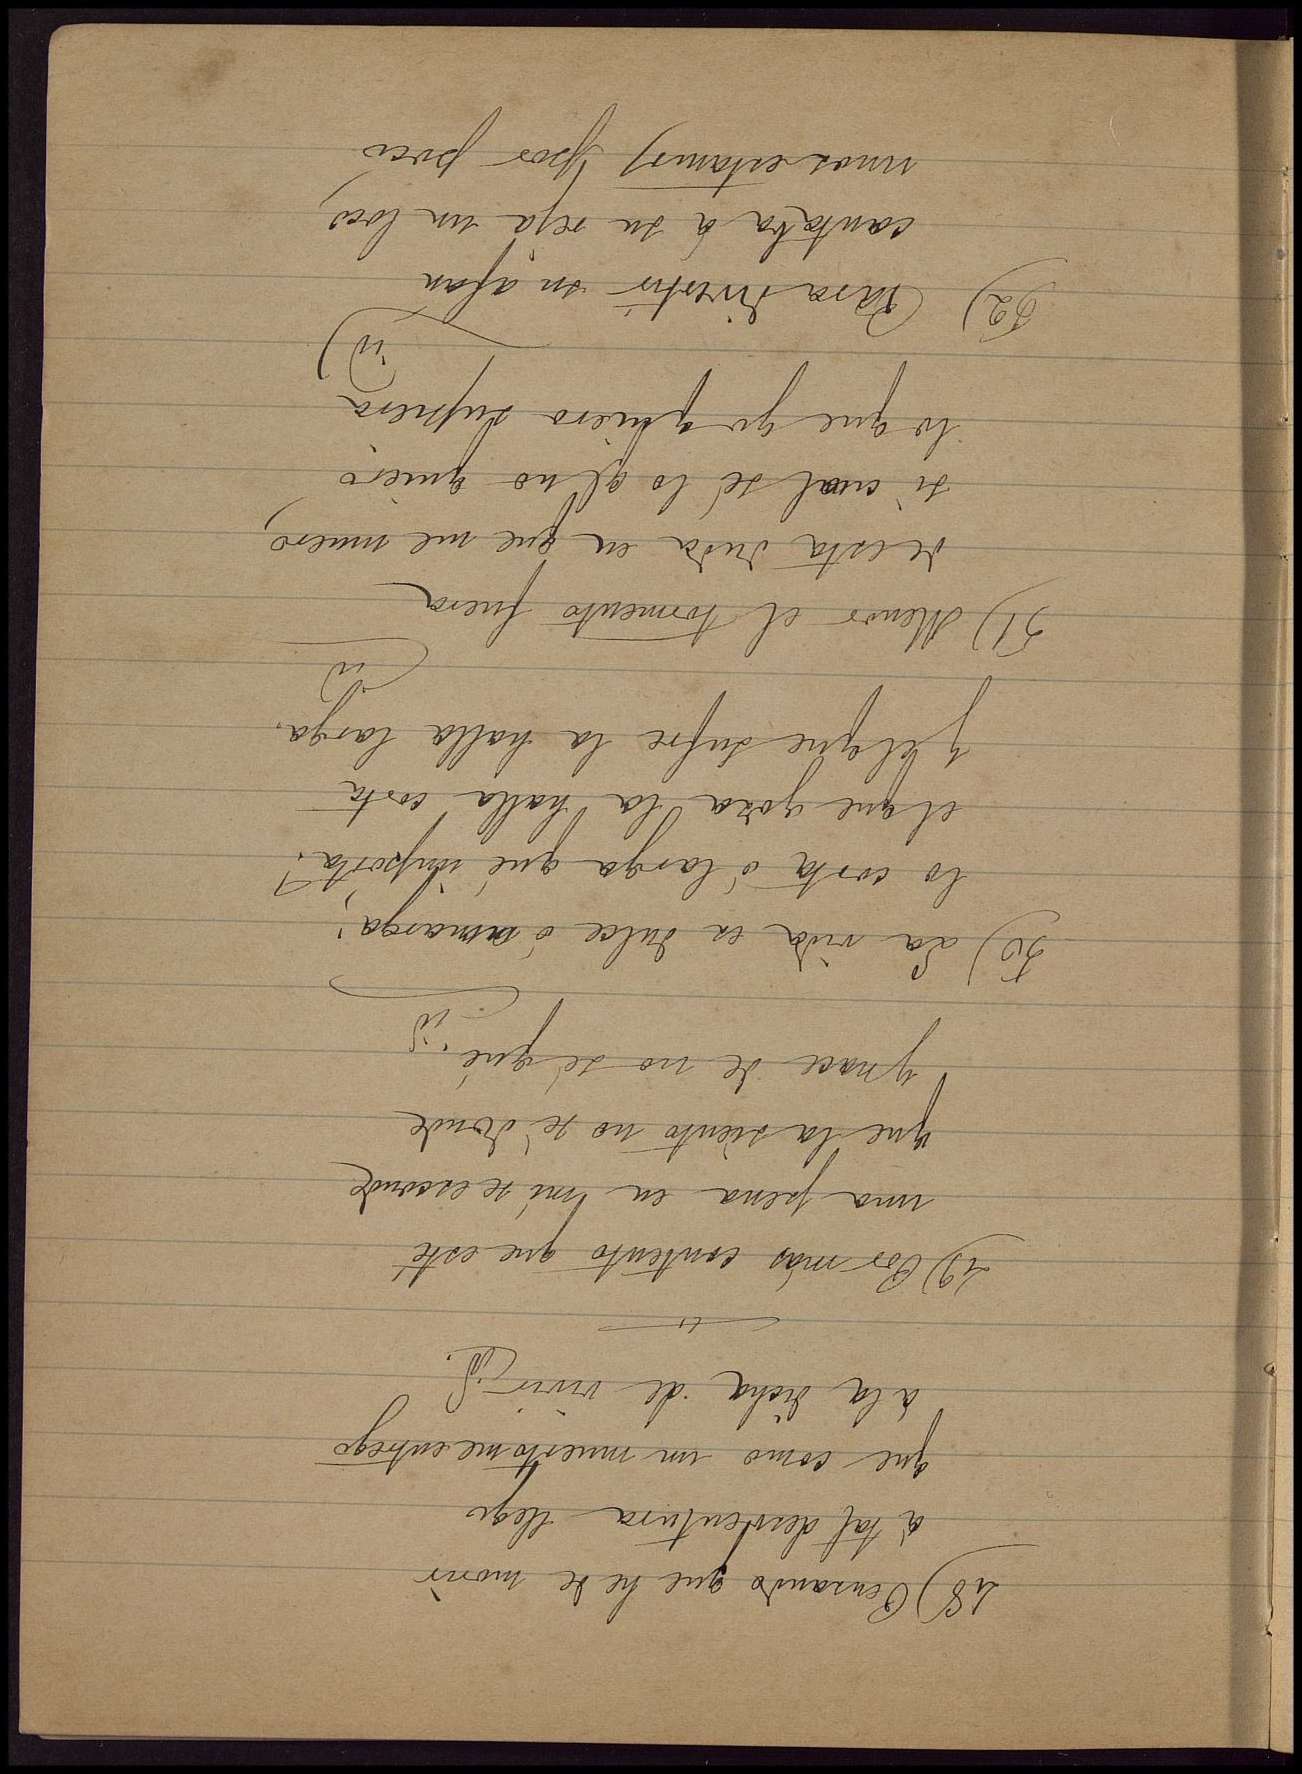 48) Pensando que he de morir
á tal desventura llego
que como un muerto me entrego
á la dicha de vivir
id.
49) Por más contento que esté
una pena en mí se esconde
que la siento no sé donde
y nace de no sé qué.
id
50) La vida es dulce ó amarga;
lo corta ó larga qué importa?
el que goza la halla corta
y el que sufre la halla larga.
id
51) Menor el tormento fuera
de esta duda en que me muero,
si cual sé lo qe no quiero
lo que yo quiero supiera
id
52) Para divertir su afan
cantaba á su reja un loco
unos estamos por poco